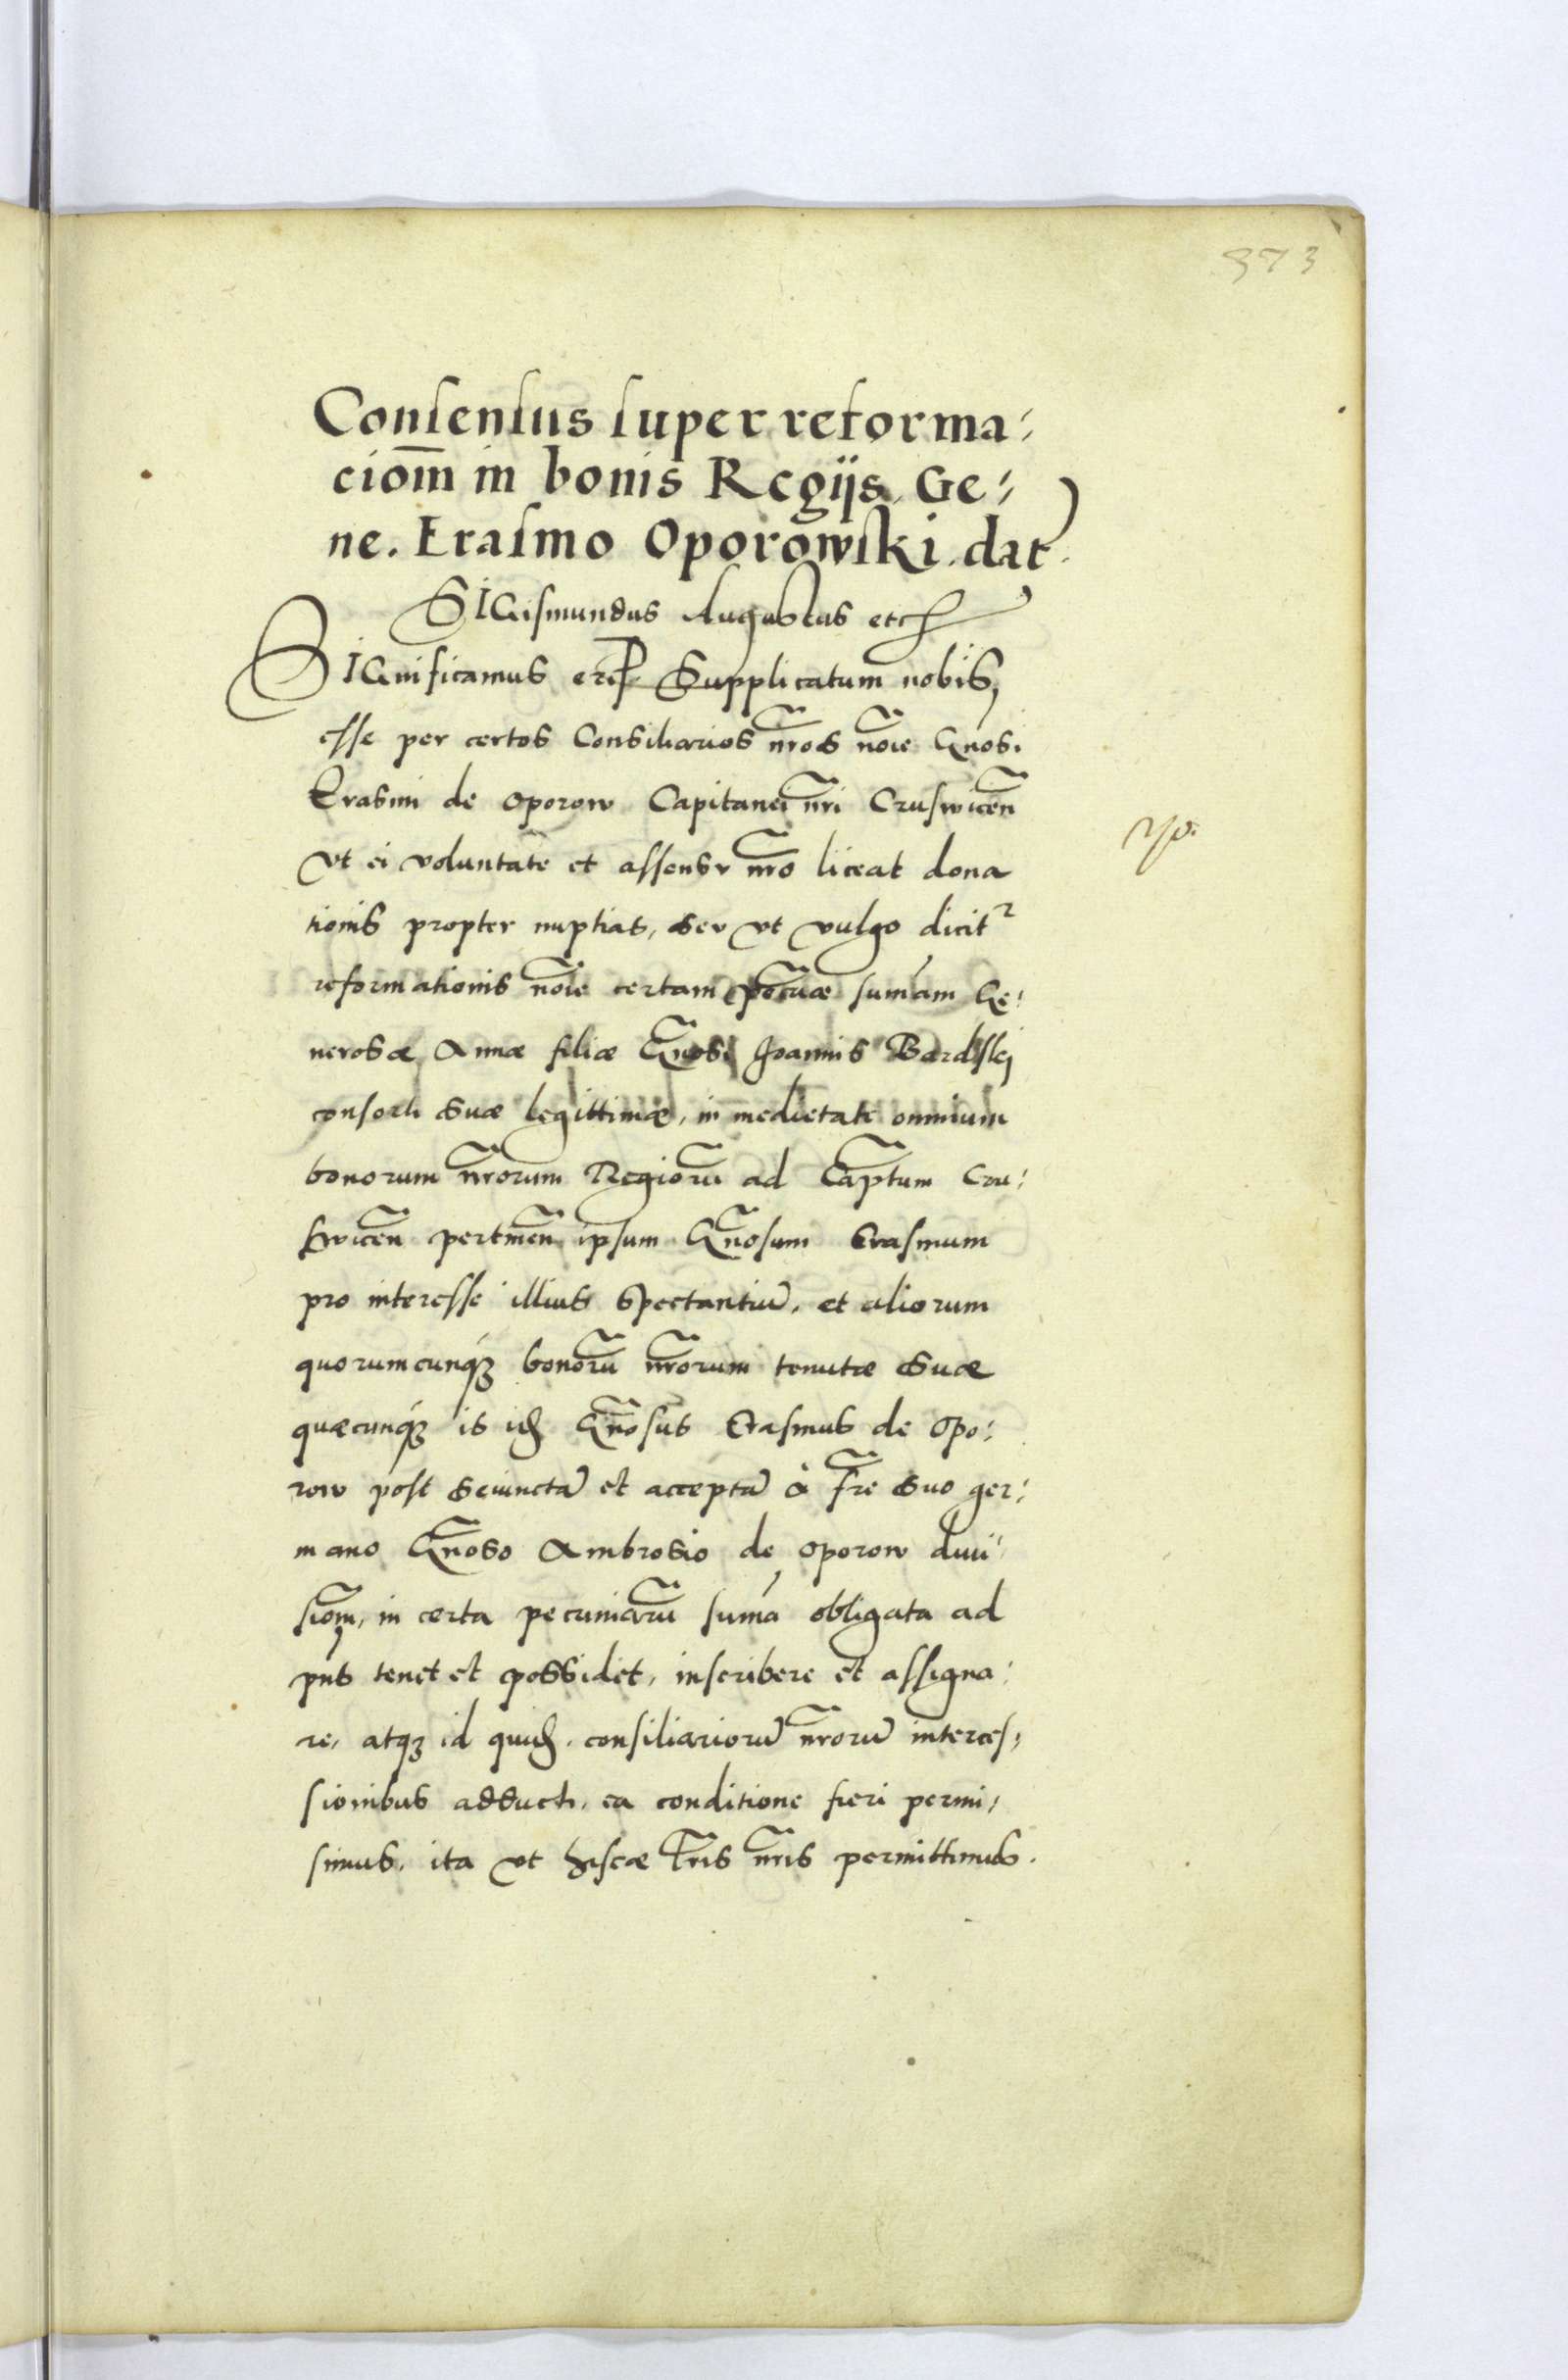 373
Consensus super reforma⸗
ciom̄ in bonis Regijs Ge⸗
ne. Erasmo Oporowski dat.
SIGismundus Augustus etc
SIGnificamus etc Supplicatum nobis,
esse per certos Consiliarios nr̃os nõie Gnosi
Erasmi de Oporow Capitanei nr̃i Cruswicen̄
vt ei voluntate et assensu nr̃o liceat dona
tionis propter nuptias, seu vt vulgo dicitr
reformationis nõie certam pecuæ sum̃am Ge⸗
nerosæ Annæ filiæ Gnosi Joannis Bardslej
consorti suæ legittimæ, in medietate omnium
bonorum nr̃orum Regiorũ ad Capt̃um Cru⸗
swicen̄ pertinen̄ ipsum Gnosum Erasmum
pro interesse illius spectantiũ, et aliorum
quorumcunqꝫ bonorũ nr̃orum tenutæ suæ
quæcunqꝫ is idẽ Gnosus Erasmus de Opo⸗
row post seiunctã et acceptã à fr̃e suo ger⸗
mano Gnoso Ambrosio de Oporow diui⸗
siom̃, in certa pecuniarũ sum̃a obligata ad
pñs tenet et possidet, inscribere et assigna⸗
re, atqꝫ id quidẽ consiliariorũ nr̃orũ interces⸗
sionibus adducti, ea conditione fieri permi⸗
simus, ita vt hisce lr̃is nr̃is permittimus.